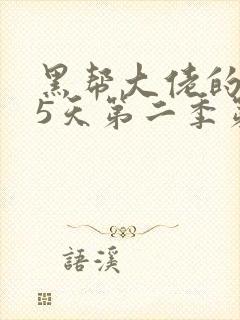 黑帮大佬的
5天第二季第
語溪